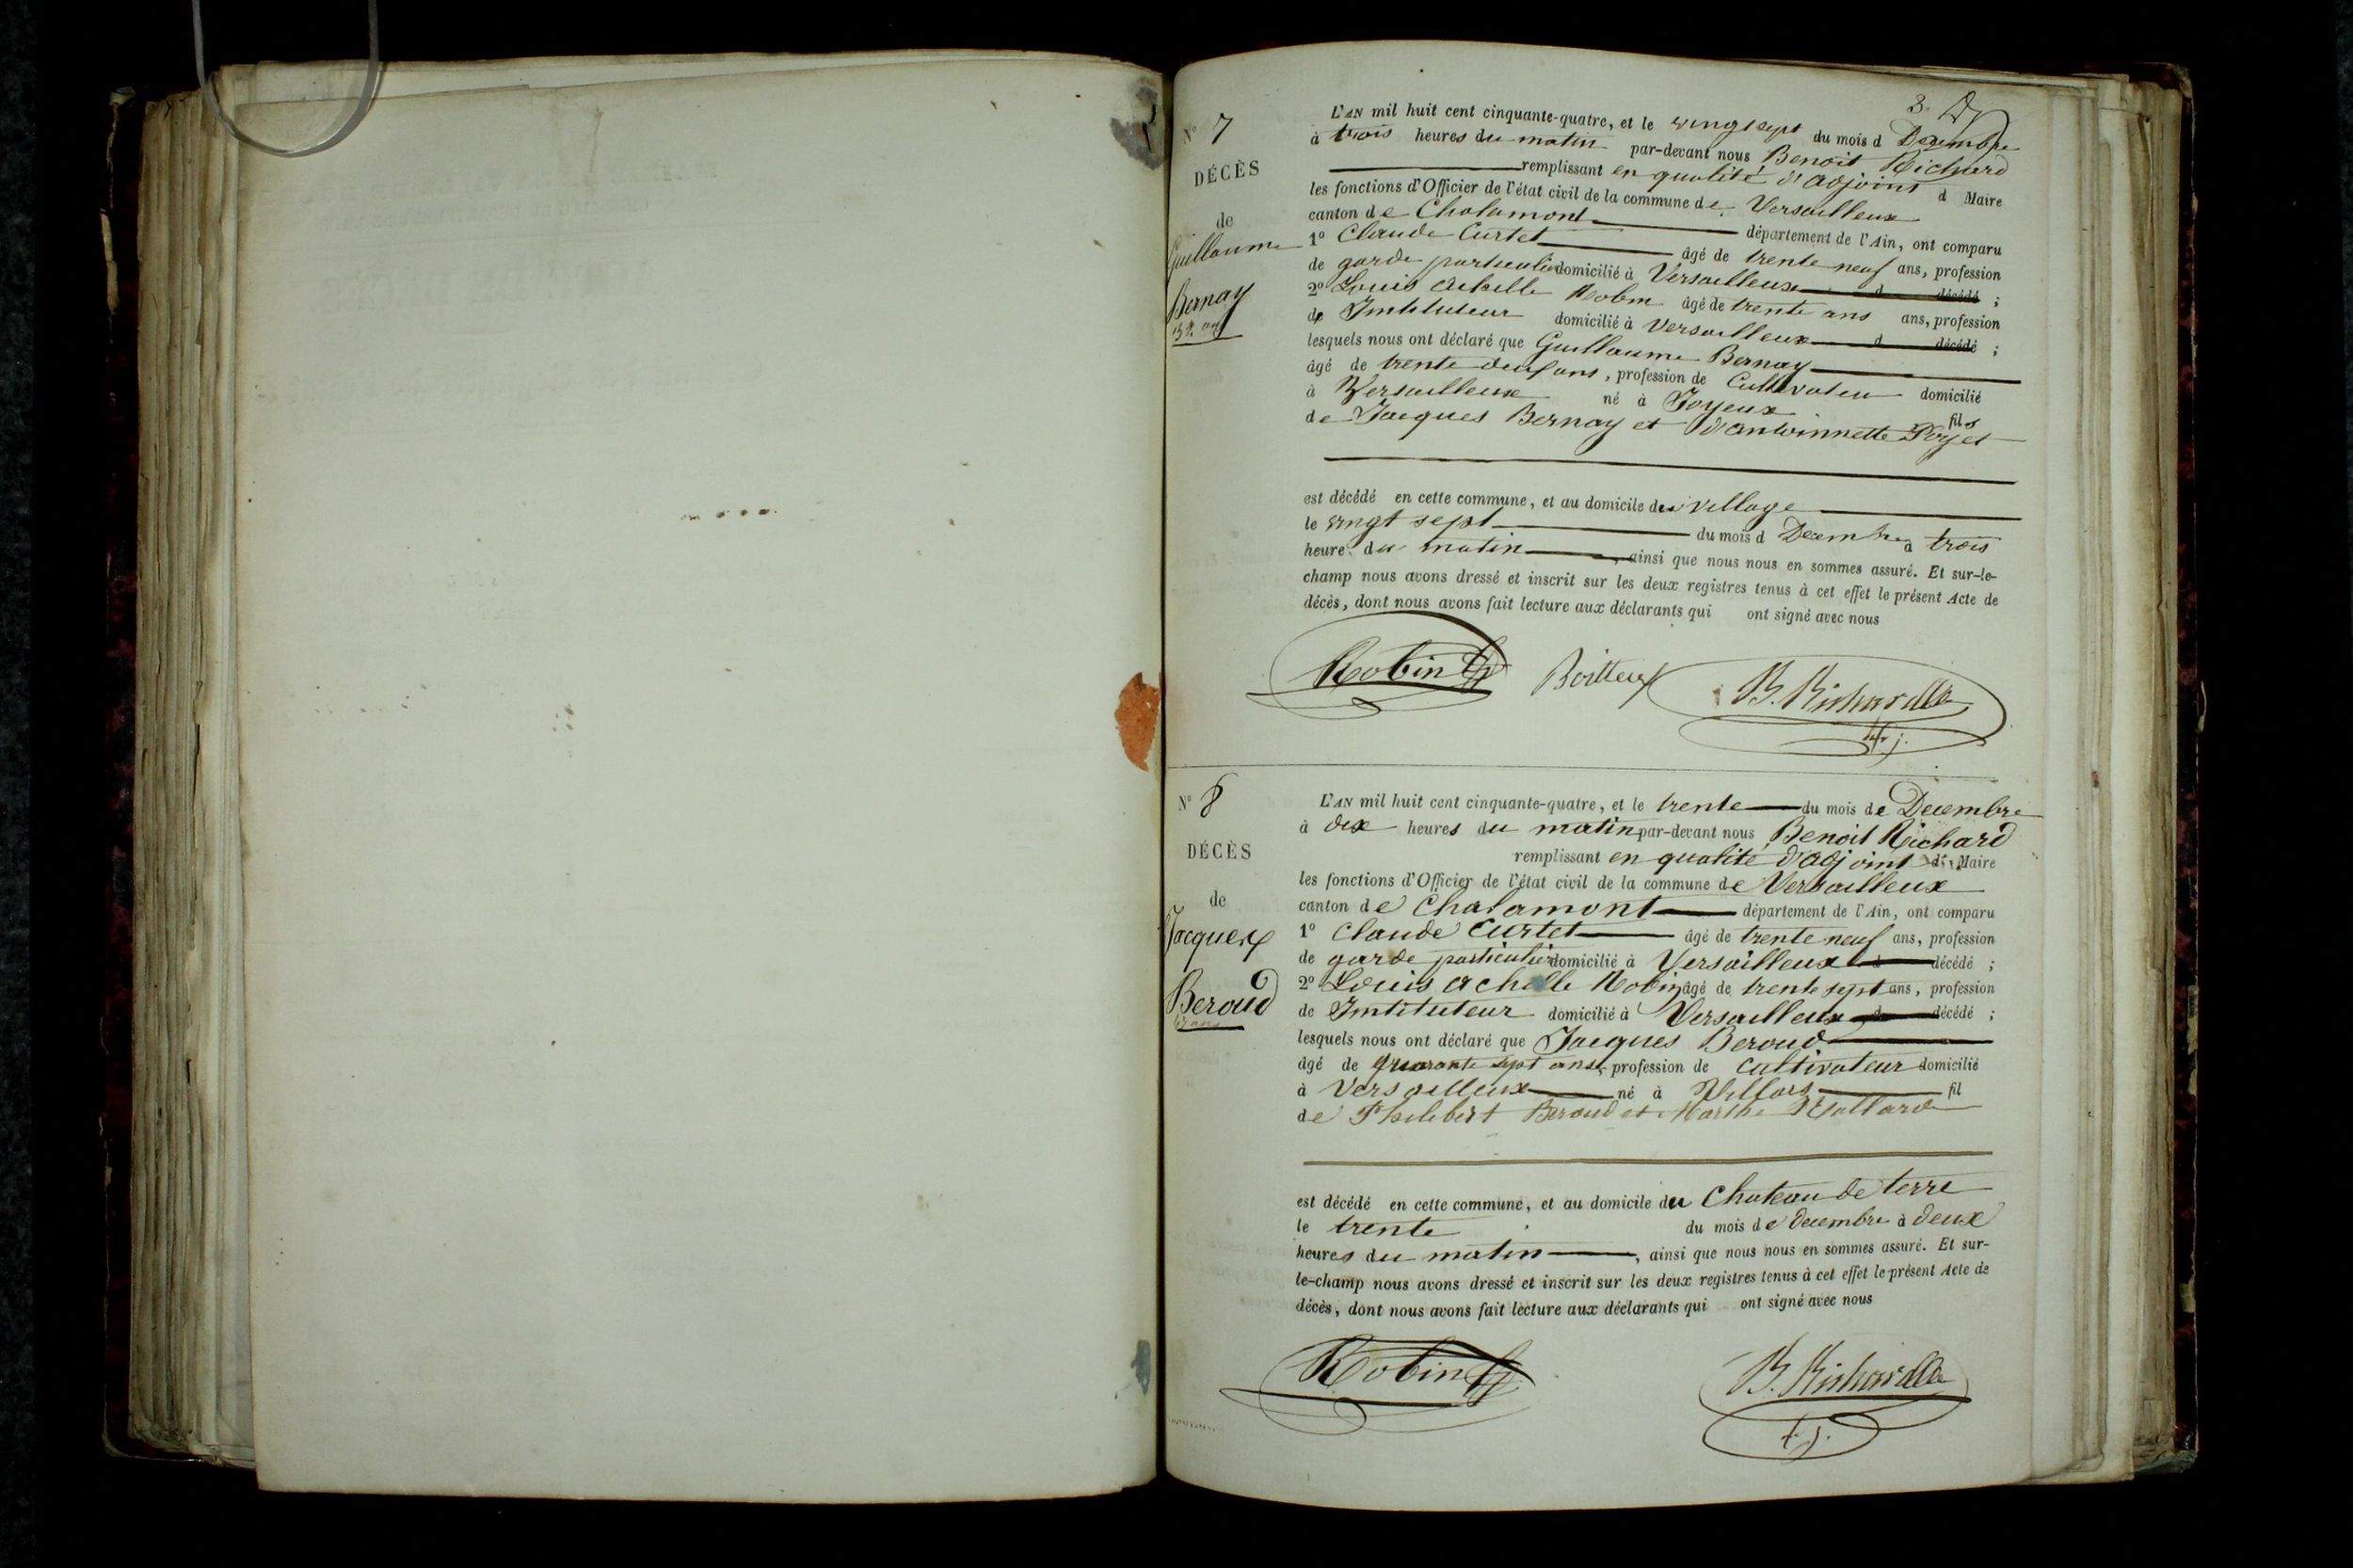 3.
N° 7
DÉCÈS
de
Guillaume
Bernay
L'AN mil huit cent cinquante-quatre, et le vingt sept du mois d Decembre
à trois heures du matin par-devant nous Benoit Richard
remplissant en qualité d'adjoint d Maire
les fonctions d'Officier de l'état civil de la commune de Versailleux
canton de Chalamont département de l'Ain, ont comparu
1° Claude Curtet âgé de trente neuf ans, profession
de garde particulier domicilié à Versailleux d décédé ;
2° Louis Achille Robin âgé de trente ans ans, profession
de Instituteur domicilié à Versailleux d décédé ;
lesquels nous ont déclaré que Guillaume Bernay
âgé de trente ans, profession de Cultivateur domicilié
à Versailleux né à Joyeux fils
de Jacques Bernay et d'antoinnette
est décédé en cette commune, et au domicile du village
le vingt sept du mois d Decembre à trois
heure du matin, ainsi que nous nous en sommes assuré. Et sur-le-
champ nous avons dressé et inscrit sur les deux registres tenus à cet effet le présent Acte de
décès, dont nous avons fait lecture aux déclarants qui ont signé avec nous
Robin Boitteux B. Richard
N° 8
DÉCÈS
de
Jacques
Beroud
L'AN mil huit cent cinquante-quatre, et le trente du mois de Decembre
à dix heures du matin par-devant nous Benoit Richard
remplissant en qualité d'adjoint d Maire
les fonctions d'Officier de l'état civil de la commune de Versailleux
canton de Chalamont département de l'Ain, ont comparu
1° Claude Curtet âgé de trente neuf ans, profession
de garde particulier domicilié à Versailleux d décédé ;
2° Louis achille Robin âgé de trente sept ans, profession
de Instituteur domicilié à Versailleux d décédé ;
lesquels nous ont déclaré que Jacques Beroud
âgé de quarante sept ans, profession de cultivateur domicilié
à Versailleux né à Villars fil
de Philibert Beroud et Marthe
est décédé en cette commune, et au domicile du Chateau de terre
le trente du mois de decembre à deux
heures du matin, ainsi que nous nous en sommes assuré. Et sur-
le-champ nous avons dressé et inscrit sur les deux registres tenus à cet effet le présent Acte de
décès, dont nous avons fait lecture aux déclarants qui ont signé avec nous
Robin B. Richard